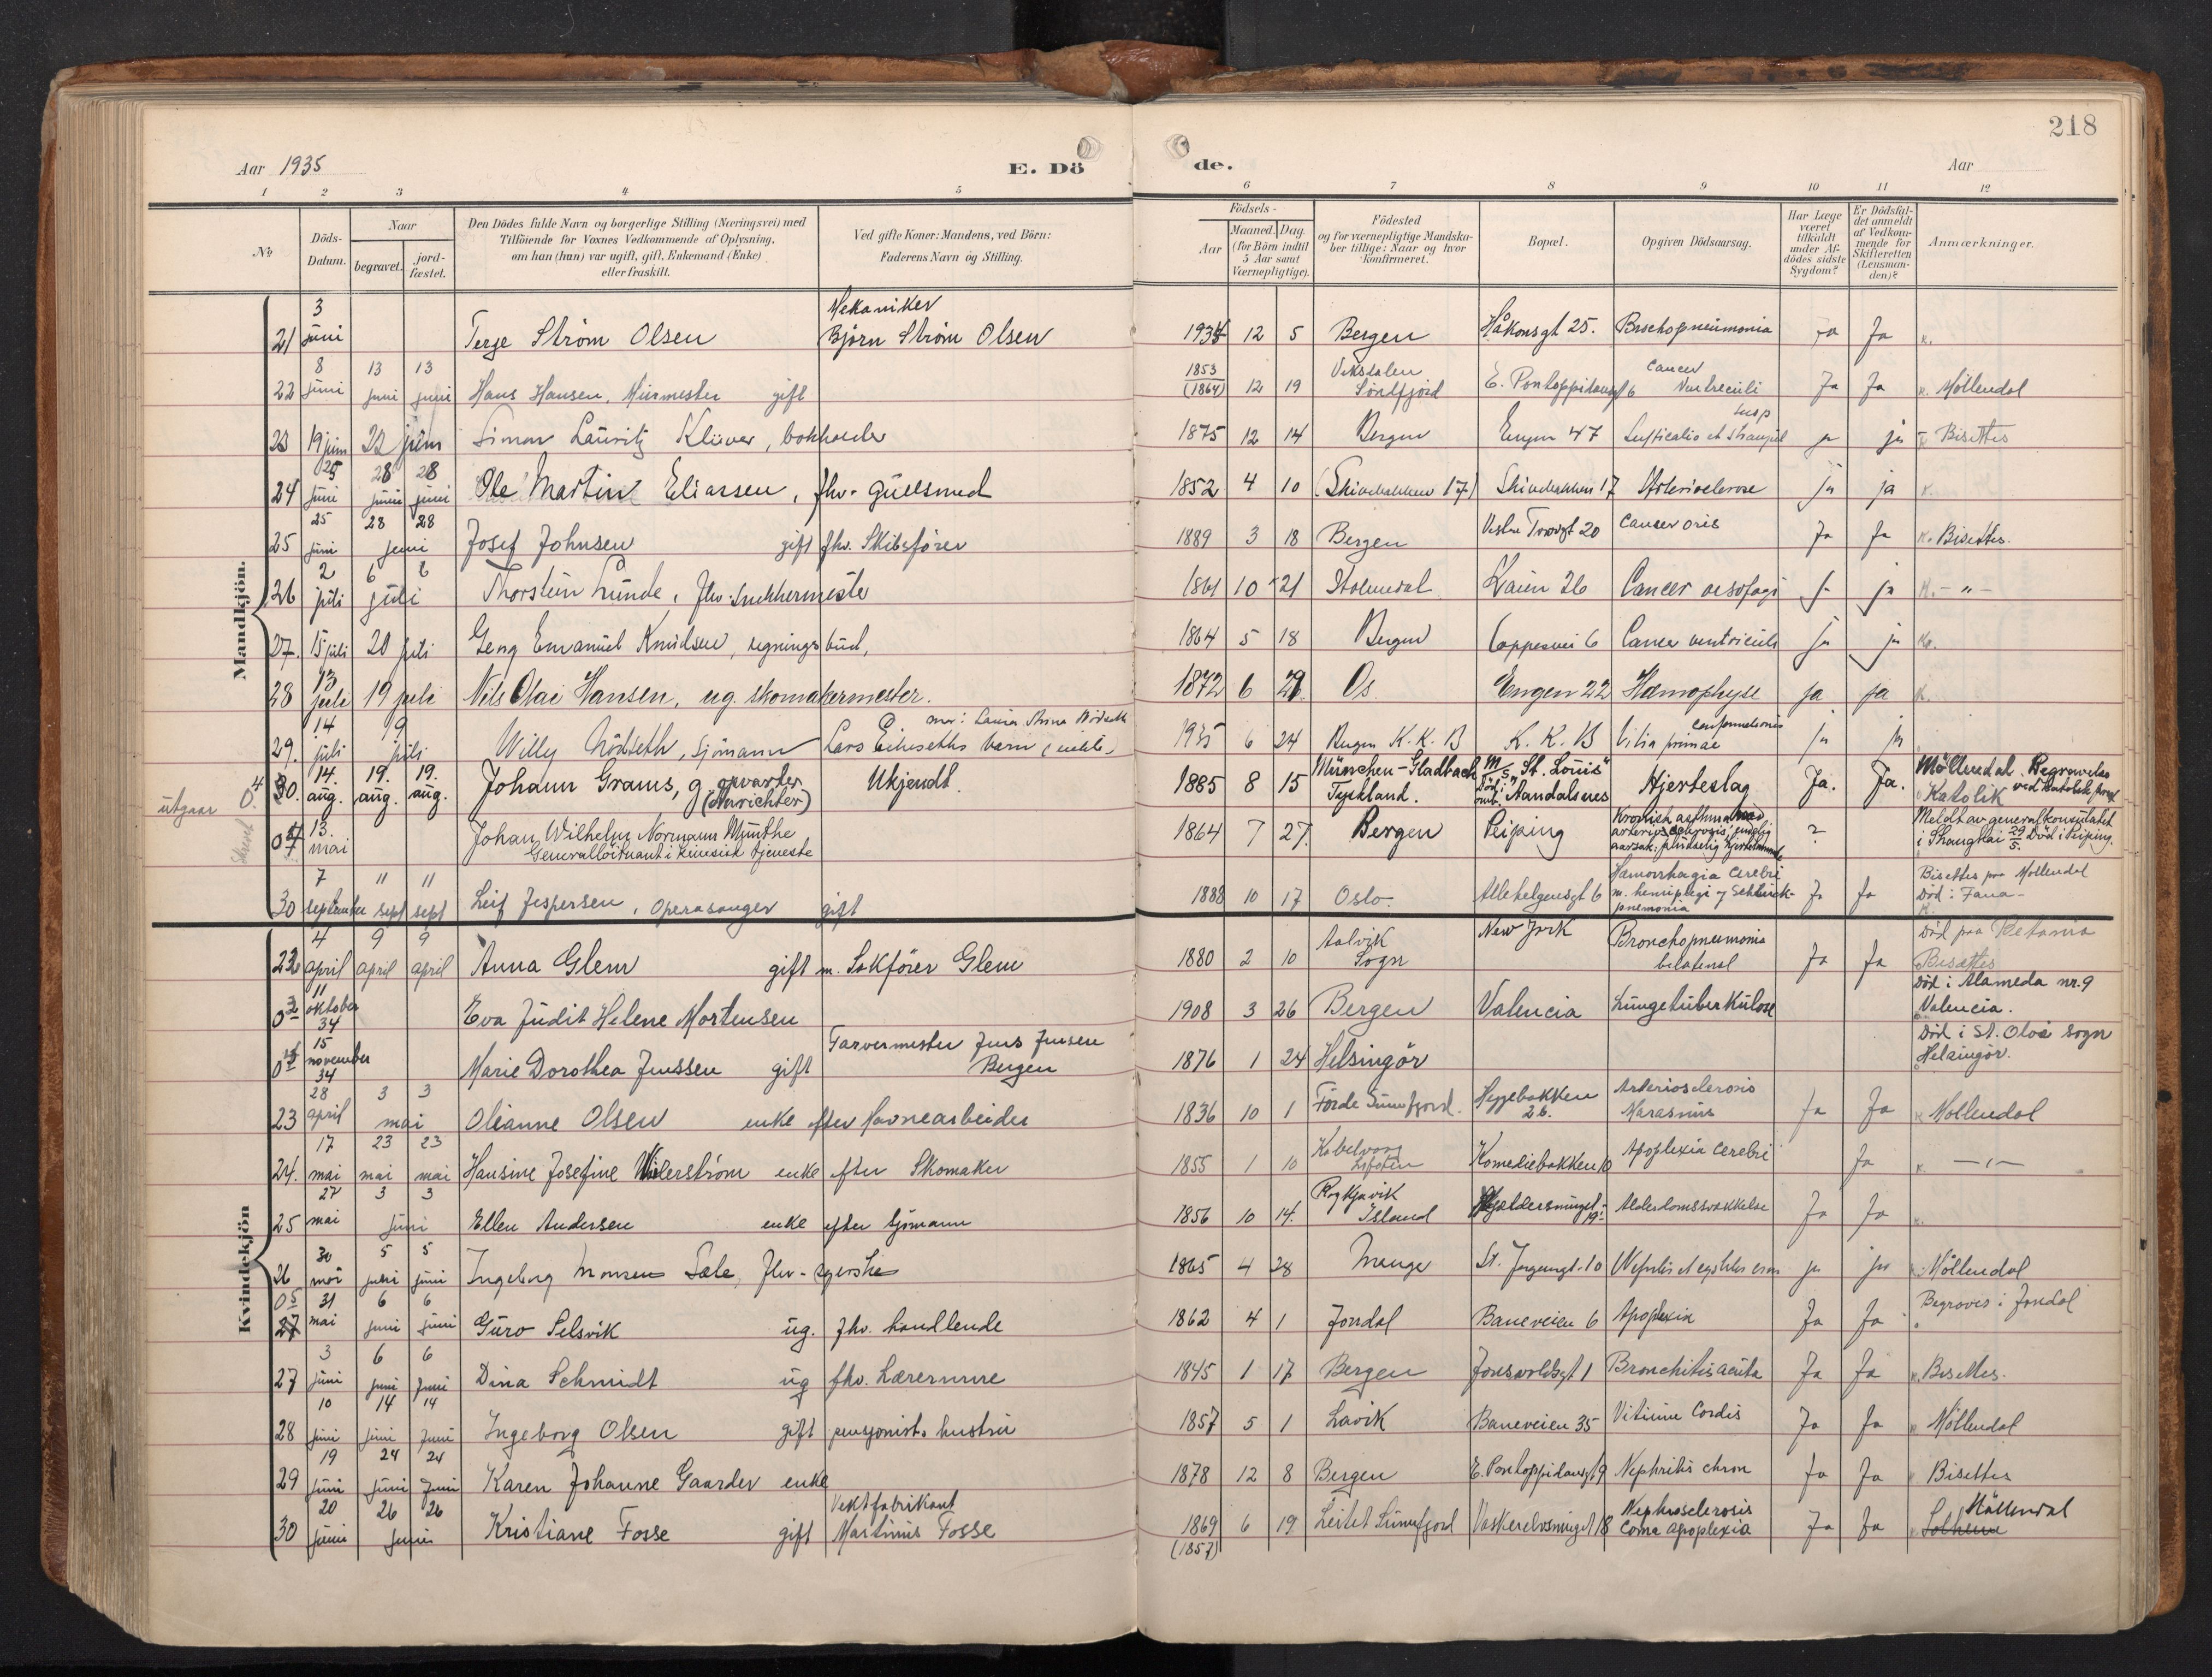 218
Aar 1935
E. Dö
de.
Aar
1 2 3 4 5 6 7 8 9 10 11 12
No
Döds-Datum.
Naar
begravet.
jord-fæstet.
Den Dödes fulde Navn og borgerlige Stilling (Næringsvei) med
Tilföiende for Voxnes Vedkommende af Oplysning,
om han (hun) var ugift, gift, Enkemand (Enke)
eller fraskilt.
Ved gifte Koner: Mandens, ved Börn:
Faderens Navn og Stilling.
Födsels-
Aar
Maaned. Dag.
(for Börn indtil
5 Aar samt
Værnepligtige).
Födested
og for værnepligtige Mandska-
ber tillige: Naar og hvor
konfirmeret.
Bopæl.
Opgiven Dödsaarsag.
Har Læge
været
tilkaldt
under Af-
dödes sidste
Sygdom?
Er Dödsfal-
det anmeldt
af Vedkom-
mende for
Skifteretten
(Lensman-
den)?
Anmærkninger.
Mandkjön.
3 Mekaniker
21 juni Terje Ström Olsen Björn Ström Olsen 1934 12 5 Bergen Håkonsgt 25. Ja Ja
8 13 13 1853 Cancer
22 juni juni juni Hans Hansen, Murmester gift (1864) 12 19 Söndfjord E. Pontoppidansgt 6 Ventriculi Ja Ja Möllendal
23 19 juni 22 juni Simon Lauritz Klüver, bokholder 1875 12 14 Bergen Engen 47 ja ja Bisettes
25 28 28
24 juni juni juni Ole Martin Eliassen, fhv. gullsmed 1852 4 10 (Skivebakken 17) Skivebakken 17 ja ja
25 28 28
25 juni juni Josef Johnsen gift fhv. Skibsförer 1889 3 18 Bergen Vestre Torvgt 20 Cancer oris Ja Ja Bisettes.
2 6 6
26 juli juli Thorstein Lunde, fhv. snekkermester 1861 10 21 Kaien 26 Cancer oesofagi ja ja - " -
27. 15 juli 20 juli Georg Emanuel Knudsen, regningsbud, 1864 5 18 Bergen 6 Cancer ventriculi ja ja
13
28 juli 19 juli Nils Olai Hansen, ug. skomakermester. 1872 6 29 Os Engen 22 Hæmophyse ja ja
14 19 mor: Laura Anna Nödseth
29. juli juli Willy Nödseth, Sjömann Lars barn 1935 6 24 Bergen K. K. B K. K. B Vitia primae conformationis ja ja
utgaar 0.4 30. 14. aug. 19. aug. 19. aug. Johann Grams, g. opvarter (Anrichter) Ukjendt. 1885 8 15 München-Gladbach Tyskland. M/S "St. Louis" Död i Aandalsnes Hjerteslag Ja. Ja. Möllendal. Begravelse ved katolsk prest Katolik
Strøket 0 13. mai Johan Wilhelm Normann Munthe
Generallöitnant i kinesisk tjeneste 1864 7 27. Bergen Peiping Kronisk asthma med arteriosclerosis, endelig aarsak: plutselig hjertelammelse ? Meldt av generalkonsulatet i Shanghai 29/5. Död i Peiping.
7 11 11
30 september sept sept Leif Jespersen, operasanger gift 1888 10 17 Oslo. Allehelgensgt 6 Hæmorrhagia Cerebri m. hemiplegi pnemonia Ja Ja Bisettes paa Möllendal Död i Fana -
Kvindekjön
4 9 9
22 april april april Anna Glem gift m. Sakförer Glem 1880 2 10 Aalvik Sogn New York Bronchopneumonia bilateral Ja Ja Död paa Betania Bisettes
11
0 3 oktober 34 Eva Judit Helene Mortensen 1908 3 26 Bergen Valencia Lungetuberkulose Död i Alameda nr. 9 Valencia.
15
0 november 34 Marie Dorothea Jenssen gift Garvermester Jens Jensen Bergen 1876 1 24 Helsingör Död i St. Olai sogn Helsingör.
28 3 3
23 april mai Olianne Olsen enke efter Havnearbeider 1836 10 1 Förde Sunnfjord. Heggebakken 26. Arteriosclerosis Marasmus Ja Ja Möllendal
17 23 23
24. mai mai mai Hansine Josefine enke efter Skomaker 1855 1 10 Kabelvaag Lofoten Komediebakken 10 Apoplexia Cerebri Ja - " -
27 3 3
25 mai juni Ellen Andersen enke efter Sjömann 1856 10 14. Reykjavik Island 19. Alderdomssvakkelse Ja Ja
30 5 5
26 mai juni juni Ingeborg Monsen Sæle, fhv. syerske 1865 4 28 Manger St. Jørgensgt. 10 ja ja Möllendal
05 31 6 6
27 mai juni juni Guro Selsvik ug. fhv. handlende 1862 4 1 Jondal Baneveien 6 Apoplexia Ja Ja Begraves i Jondal
3 6 6
27 juni juni juni Dina Schmidt ug fhv. Lærerinne 1845 1 17 Bergen Jonsvoldsgt 1 Bronchitis acuta Ja Ja Bisettes.
10 14 14
28 juni juni juni Ingeborg Olsen gift pensjonists hustru 1857 5 1 Lavik Baneveien 35 Vitium Cordis Ja Ja Möllendal
19 24 24
29 juni juni juni Karen Johanne Gaarder enke 1878 12 8 Bergen E. Pontoppidansgt 9 Nephritis chron Ja Ja Bisettes
20 26 26 Vektfabrikant
30 juni juni Kristiane Fosse gift Martinus Fosse 1869 (1857) 6 19 Leitet Sunnfjord Vaskerelvsmuget 18 Nephrosclerosis Coma apoplexia Ja Ja Möllendal Solheim